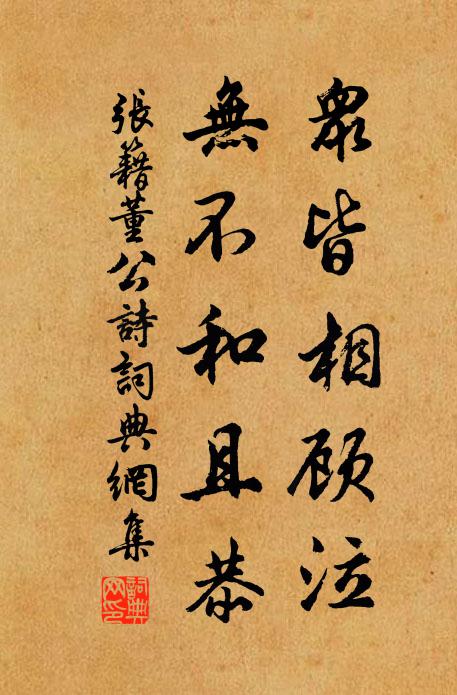 眾皆相顾泣
無不和且恭
張籍董公詩詞典網集
詞典网印